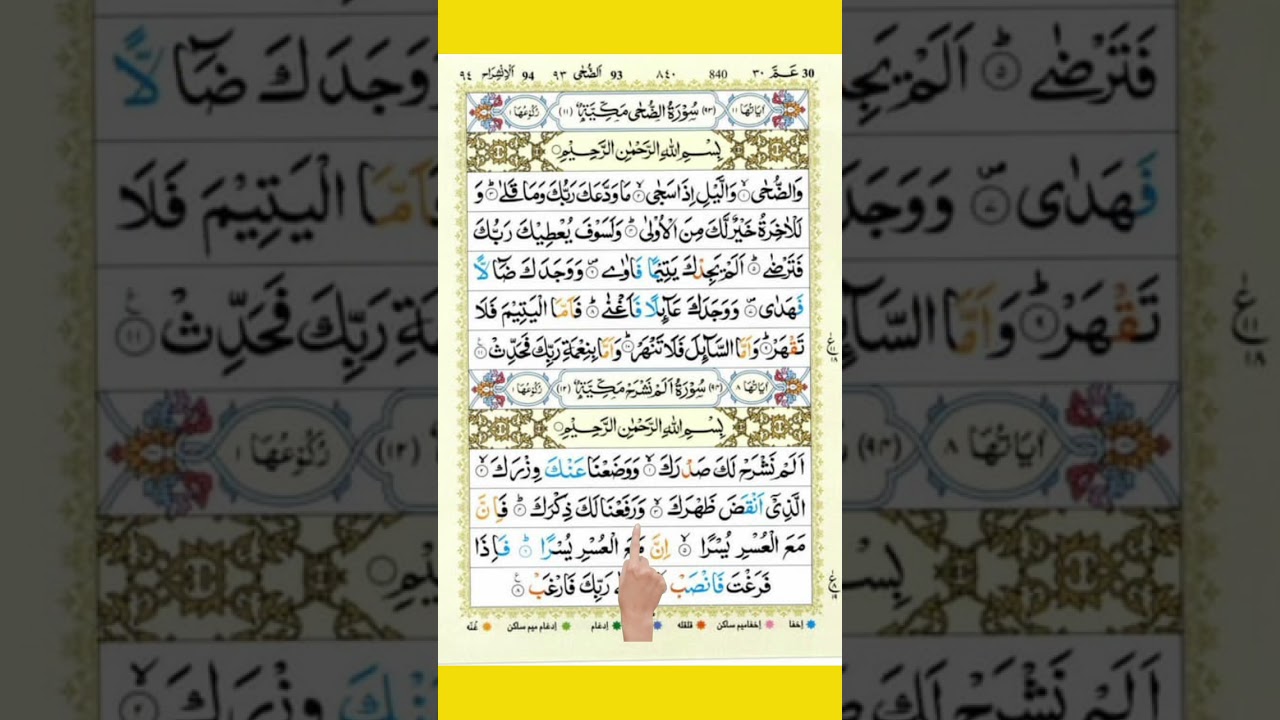 ٩٤ اَلْاِنْشِرَاح 94 ٩٣ اَلضُّحٰى 93 ٨٤٠ 840 ٣٠ عَـمَّ 30
اٰيَاتُهَا ١١ (٩٣) سُوْرَةُ الضُّحٰى مَكِّيَّةٌ (١١) رُكُوْعُهَا ١
بِسْمِ اللهِ الرَّحْمٰنِ الرَّحِيْمِ
وَالضُّحٰى ۙ١ وَالَّيْلِ اِذَا سَجٰى ۙ٢ مَا وَدَّعَكَ رَبُّكَ وَمَا قَلٰى ؕ٣ وَ
لَلْاٰخِرَةُ خَيْرٌ لَّكَ مِنَ الْاُوْلٰى ؕ٤ وَلَسَوْفَ يُعْطِيْكَ رَبُّكَ
فَتَرْضٰى ؕ٥ اَلَمْ يَجِدْكَ يَتِيْمًا فَاٰوٰى ۪٦ وَوَجَدَكَ ضَآلًّا
فَهَدٰى ۪٧ وَوَجَدَكَ عَآئِلًا فَاَغْنٰى ؕ٨ فَاَمَّا الْيَتِيْمَ فَلَا
تَقْهَرْ ؕ٩ وَاَمَّا السَّآئِلَ فَلَا تَنْهَرْ ؕ١٠ وَاَمَّا بِنِعْمَةِ رَبِّكَ فَحَدِّثْ ١١
اٰيَاتُهَا ٨ (٩٤) سُوْرَةُ اَلَمْ نَشْرَحْ مَكِّيَّةٌ (١٢) رُكُوْعُهَا ١
بِسْمِ اللهِ الرَّحْمٰنِ الرَّحِيْمِ
اَلَمْ نَشْرَحْ لَكَ صَدْرَكَ ۙ١ وَوَضَعْنَا عَنْكَ وِزْرَكَ ۙ٢
الَّذِيْۤ اَنْقَضَ ظَهْرَكَ ۙ٣ وَرَفَعْنَا لَكَ ذِكْرَكَ ؕ٤ فَاِنَّ
مَعَ الْعُسْرِ يُسْرًا ۙ٥ اِنَّ مَعَ الْعُسْرِ يُسْرًا ؕ٦ فَاِذَا
فَرَغْتَ فَانْصَبْ رَبِّكَ فَارْغَبْ ٨
اِخفا اِخفامیم ساکن قلقله اِدغام اِدغام میم ساکن غُنّه